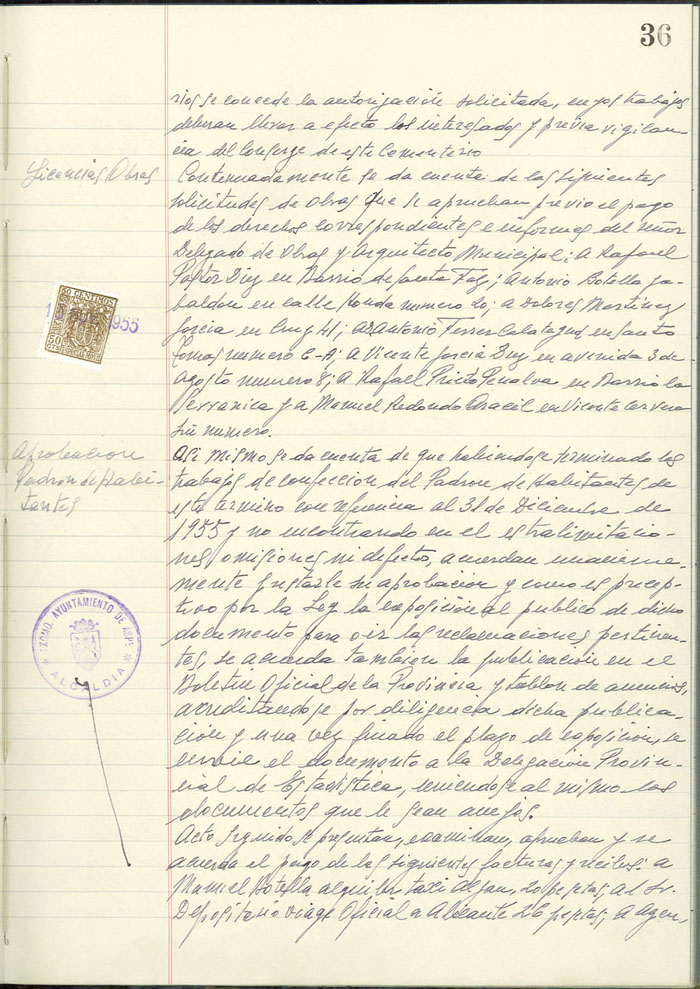 36
rios se concede la autorización solicitada, cuyos trabajos
deberan llevar a efecto los interesados y previa vigilan-
cia del Conserge de este Cementerio
Licencias Obras
Continuadamente se da cuenta de las siguientes
solicitudes de obras que se aprueban previo el pago
de los derechos correspondientes e informes del señor
Delegado de Obras y Arquitecto Municipal; A Rafael
Pastor Diez en Barrio de Santa Faz; Antonio Botella Ga-
baldon en calle Honda numero 20; a Dolores Martinez
Garcia en Cruz 41; a Antonio Ferrer Calatayud en Santo
Tomas numero C-A; a Vicente Garcia en avenida 3 de
Agosto numero 8; A Rafael Prieto Penalva en Barrio la
Serranica y a Manuel Redondo Aracil en Vicente Cervera
sin numero.
50 CENTIMOS
1955
50
CTS
Aprobacion
Padron de Habi-
tantes
Asi mismo se da cuenta de que habiendose terminado los
trabajos de confección del Padron de Habitantes de
este termino con referencia al 31 de Diciembre de
1955 y no encontrando en el extralimitacio-
nes, omisiones ni defecto, acuerdan unanime-
mente prestarle su aprobacion y como es precep-
tivo por la Ley la exposición al publico de dicho
documento para oir las reclamaciones pertinen-
tes, se acuerda tambien la publicación en el
Boletin Oficial de la Provincia y tablon de anuncios,
acreditandose por diligencia dicha publica-
cion y una vez finado el plazo de exposición, se
envie el documento a la Delegación Provin-
cial de Estadistica, uniendose al mismo los
documentos que le sean anejos.
EXCMO. AYUNTAMIENTO DE ASPE
ALCALDIA
Acto seguido se presentan, examinan, aprueban y se
acuerda el pago de las siguientes facturas y recibos: a
Manuel Botella alquiler taxi 20 pesetas; al Sr.
Depositario viage Oficial a Alicante 26 pesetas; a Agen-